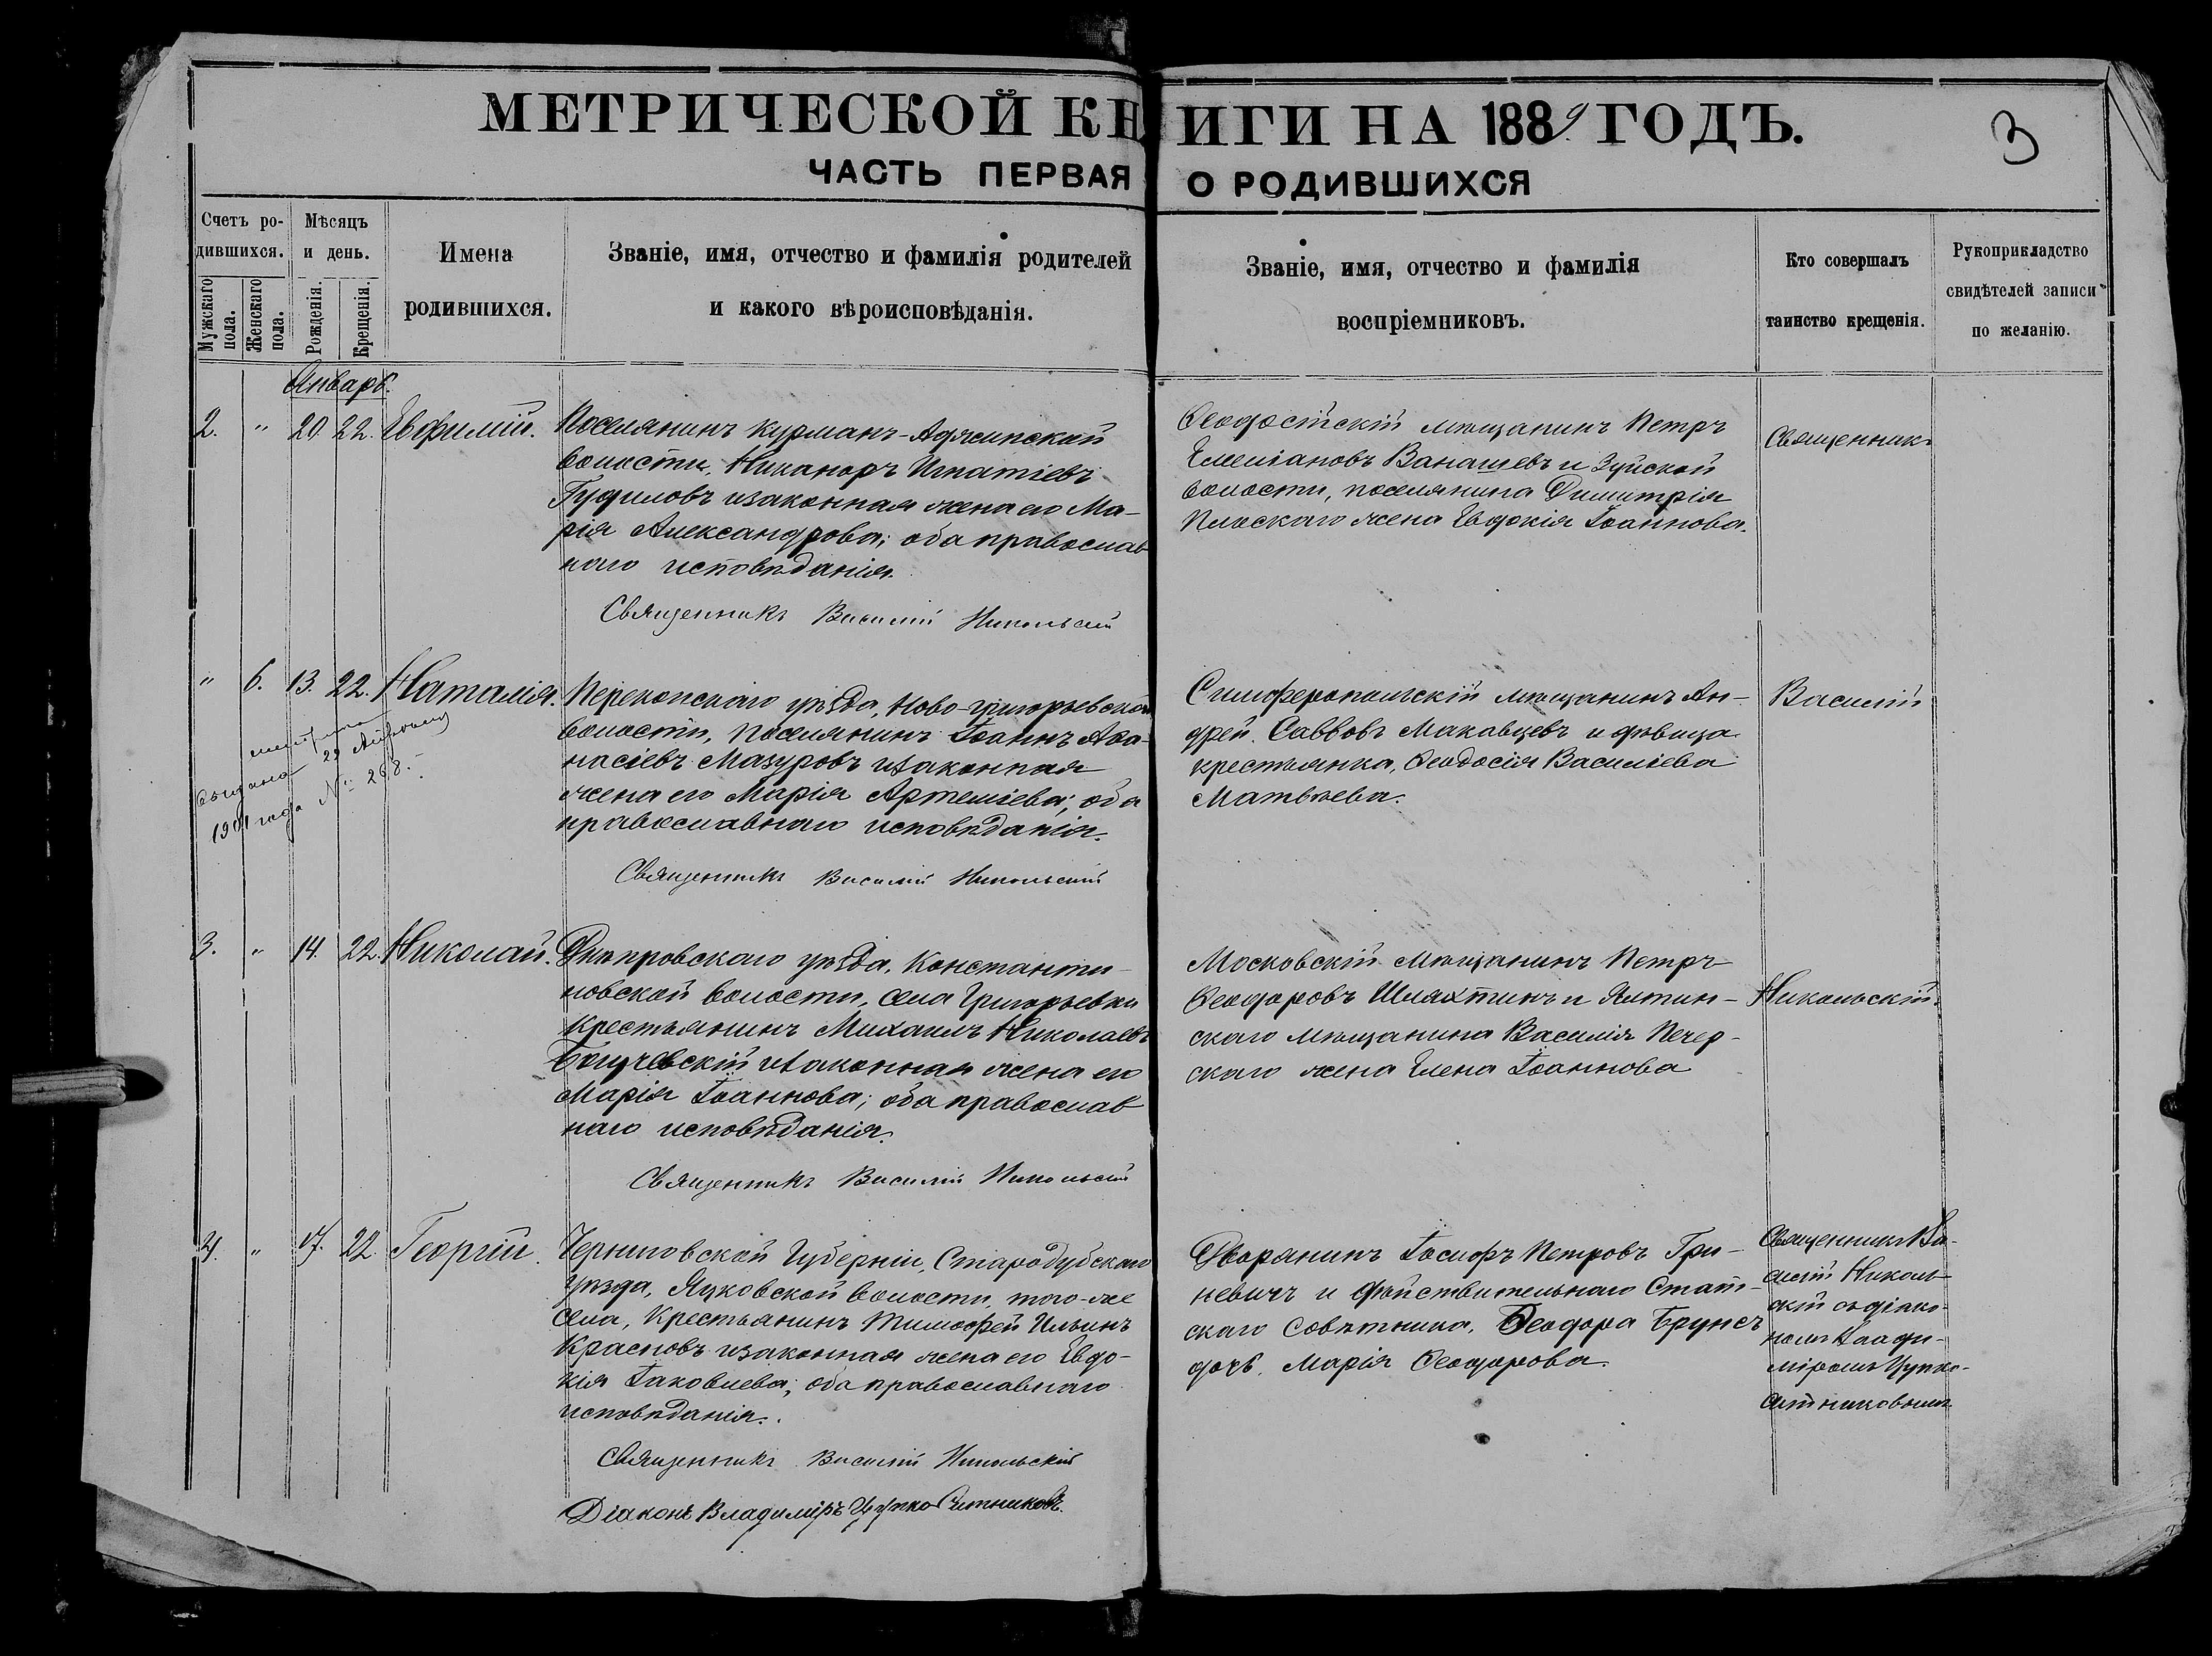 МЕТРИЧЕСКОЙ КНИГИ НА 1889 ГОДЪ.
3
ЧАСТЬ ПЕРВАЯ О РОДИВШИХСЯ
Счетъ ро-
дившихся.
Мужскаго пола.
Женскаго пола.
Мѣсяцъ
и день.
Рожденія.
Крещенія.
Имена
родившихся.
Званіе, имя, отчество и фамилія родителей
и какого вѣроисповѣданія.
Званіе, имя, отчество и фамилія
воспріемниковъ.
Кто совершалъ
таинство крещенія.
Рукоприкладство
свидѣтелей записи
по желанію.
Январь.
2. " 20. 22. Евфимій.
Поселянинъ Курманъ-Аджинской
волости, Никаноръ Игнатіевъ
Гудиловъ и законная жена его Ма-
рія Александрова; оба православ-
наго исповѣданія.
Священникъ Василій Никольскій
Ѳеодосійскій мѣщанинъ Петръ
Емеліановъ Ванашевъ и Зуйской
волости, поселянина Димитрія
Пласкаго жена Евдокія Іоаннова.
Священникъ
" 6. 13. 22. Наталія.
метрика
выдана 29
1901 года № 268.
Перекопскаго уѣзда, Ново-григорьевской
волости, поселянинъ Іоаннъ Аѳа-
насіевъ Мазуровъ и законная
жена его Марія Артеміева; оба
православнаго исповѣданія.
Священникъ Василій Никольскій
Симферопольскій мѣщанинъ Ан-
дрей Саввовъ Маковцевъ и дѣвица
крестьянка, Ѳеодосія Василіева
Матвѣева.
Василій
3. " 14. 22. Николай.
Днѣпровскаго уѣзда, Константи-
новской волости, села Григорьевки
Крестьянинъ Михаилъ Николаевъ
Богучевскій и законная жена его
Марія Іоаннова; оба православ-
наго исповѣданія.
Священникъ Василій Никольскій
Московскій мѣщанинъ Петръ
Ѳеодоровъ Шляхтинъ и Ялтин-
скаго мѣщанина Василія Печер-
скаго жена Елена Іоаннова
Никольскій.
4. " 17. 22. Георгій.
Черниговской Губерніи, Стародубскаго
уѣзда, Яцковской волости, того-же
села, Крестьянинъ Тимоѳей Ильинъ
Красновъ и законная жена его Евдо-
кія Іаковлева; оба православнаго
исповѣданія.
Священникъ Василій Никольскій
Діаконъ Владиміръ Цупко-Ситниковъ.
Дворянинъ Іосифъ Петровъ Гри-
невичъ и дѣйствительнаго Стат-
скаго Совѣтника, Ѳеодора Брунсъ
дочь, Марія Ѳеодорова.
Священникъ Ва-
силій Николь-
скій съ діако-
номъ Влади-
міромъ Цупко-
Ситниковымъ